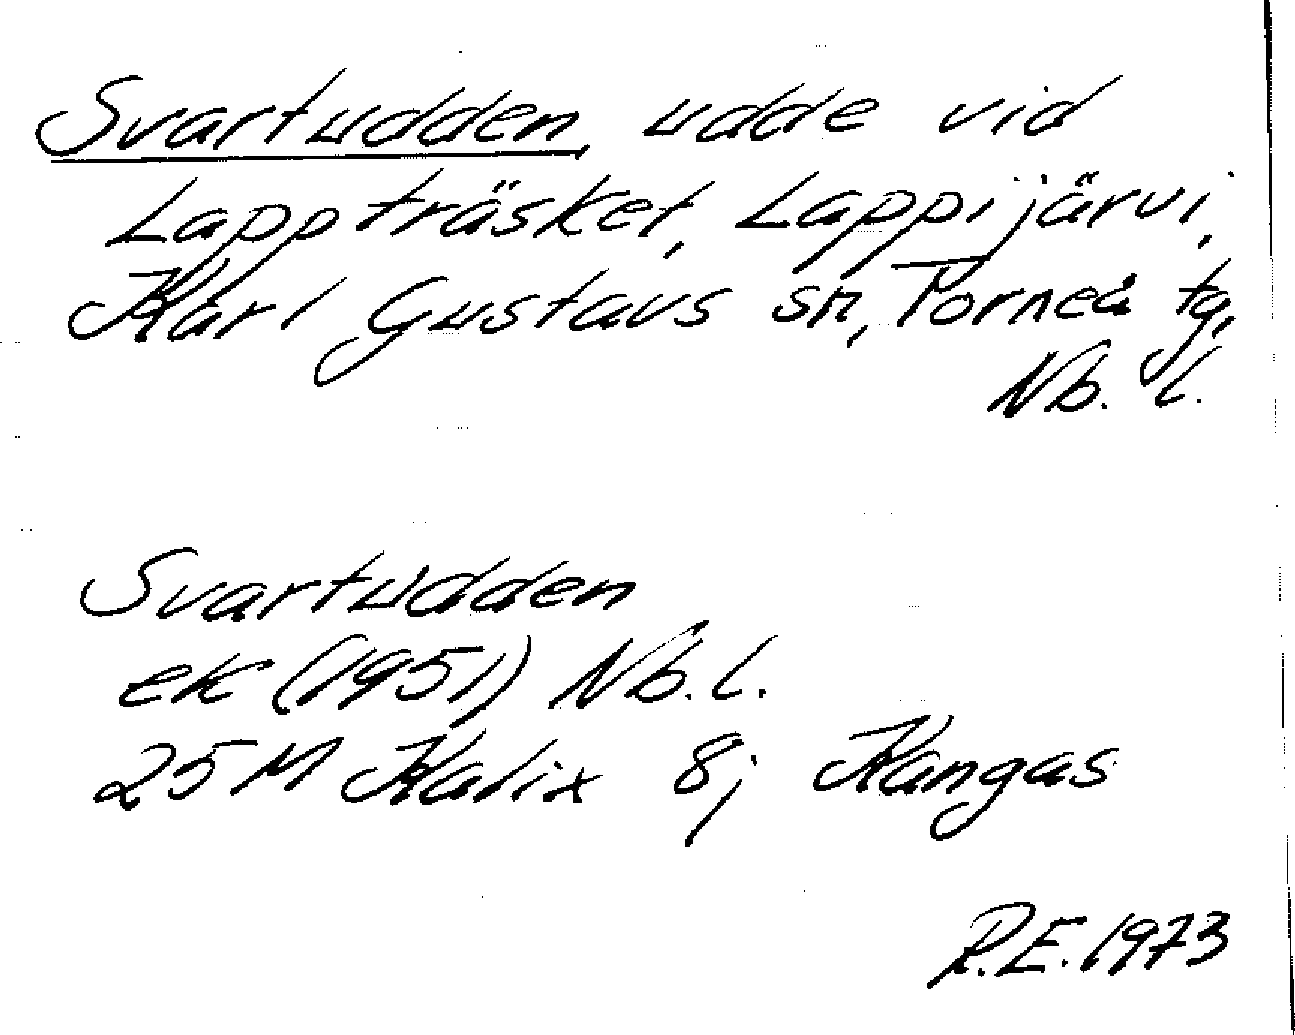 Svartudden, udde vid
Lappträsket, Lappijärvi,
Karl Gustavs sn, Torneå tg,
Nb. l.
Svartudden
ek (1951) Nb. l.
25 M Kalix 8j Kangas
R.E. 1973